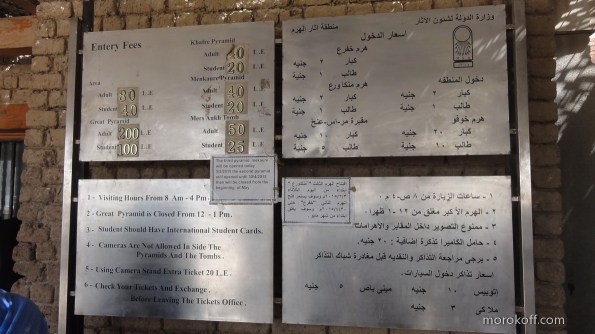 Entery Fees
Khafre Pyramid
Adult 40 L.E
Student 20
Menkaure Pyramid
Adult 40 L.E
Student 20
Mers Ankh Tomb
Adult 50 L.E
Student 25
Area
Adult 80 L.E
Student 40
Great Pyramid
Adult 200 L.E
Student 100
وزارة الدولة لشئون الآثار
منطقة آثار الهرم
اسعار الدخول
هرم خفرع
كبار ٢ جنيه
طالب ١ جنيه
هرم منكاورع
كبار ٢ جنيه
طالب ١ جنيه
مقبرة مر-اس-عنخ
كبار ١٠ جنيه
طالب ٥ جنيه
دخول المنطقه
كبار ٢ جنيه
طالب ١ جنيه
هرم خوفو
كبار ٢٠ جنيه
طالب ١٠ جنيه
1 - Visiting Hours From 8 Am - 4 Pm
2 - Great Pyramid is Closed From 12 - 1 Pm.
3 - Student Should Have International Student Cards.
4 - Cameras Are Not Allowed In Side The
Pyramids And The Tombs .
5 - Using Camera Stand Extra Ticket 20 L.E .
6 - Check Your Tickets And Exchange
Before Leaving The Tickets Office .
The third pyramid
will be opened today
the second pyramid
will opened until
then will be closed from the
beginning of May
١ - ساعات الزيارة من ٨ ص - ٤ م .
٢ - الهرم الأكبر مغلق من ١٢ - ١ ظهرا .
٣ - ممنوع التصوير داخل المقابر والاهرامات .
٤ - حامل الكاميرا تذكرة إضافية : ٢٠ جنيه .
٥ - يرجى مراجعة التذاكر والنقديه قبل مغادرة شباك التذاكر
اسعار تذاكر دخول السيارات .
اتوبيس ١٠ جنيه مينى باص ٥ جنيه
ملاكى ٢ جنيه
morokoff.com